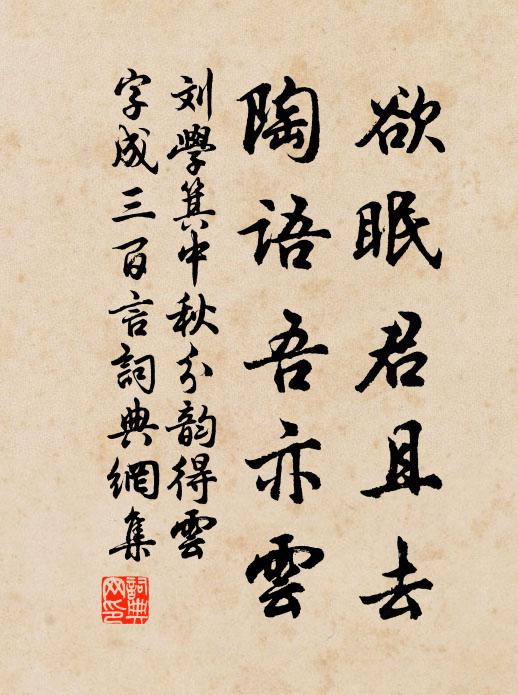 欲眠君且去
陶语吾亦雲
刘學箕中秋分韵得雲
字成三百言詞典網集
詞典网印